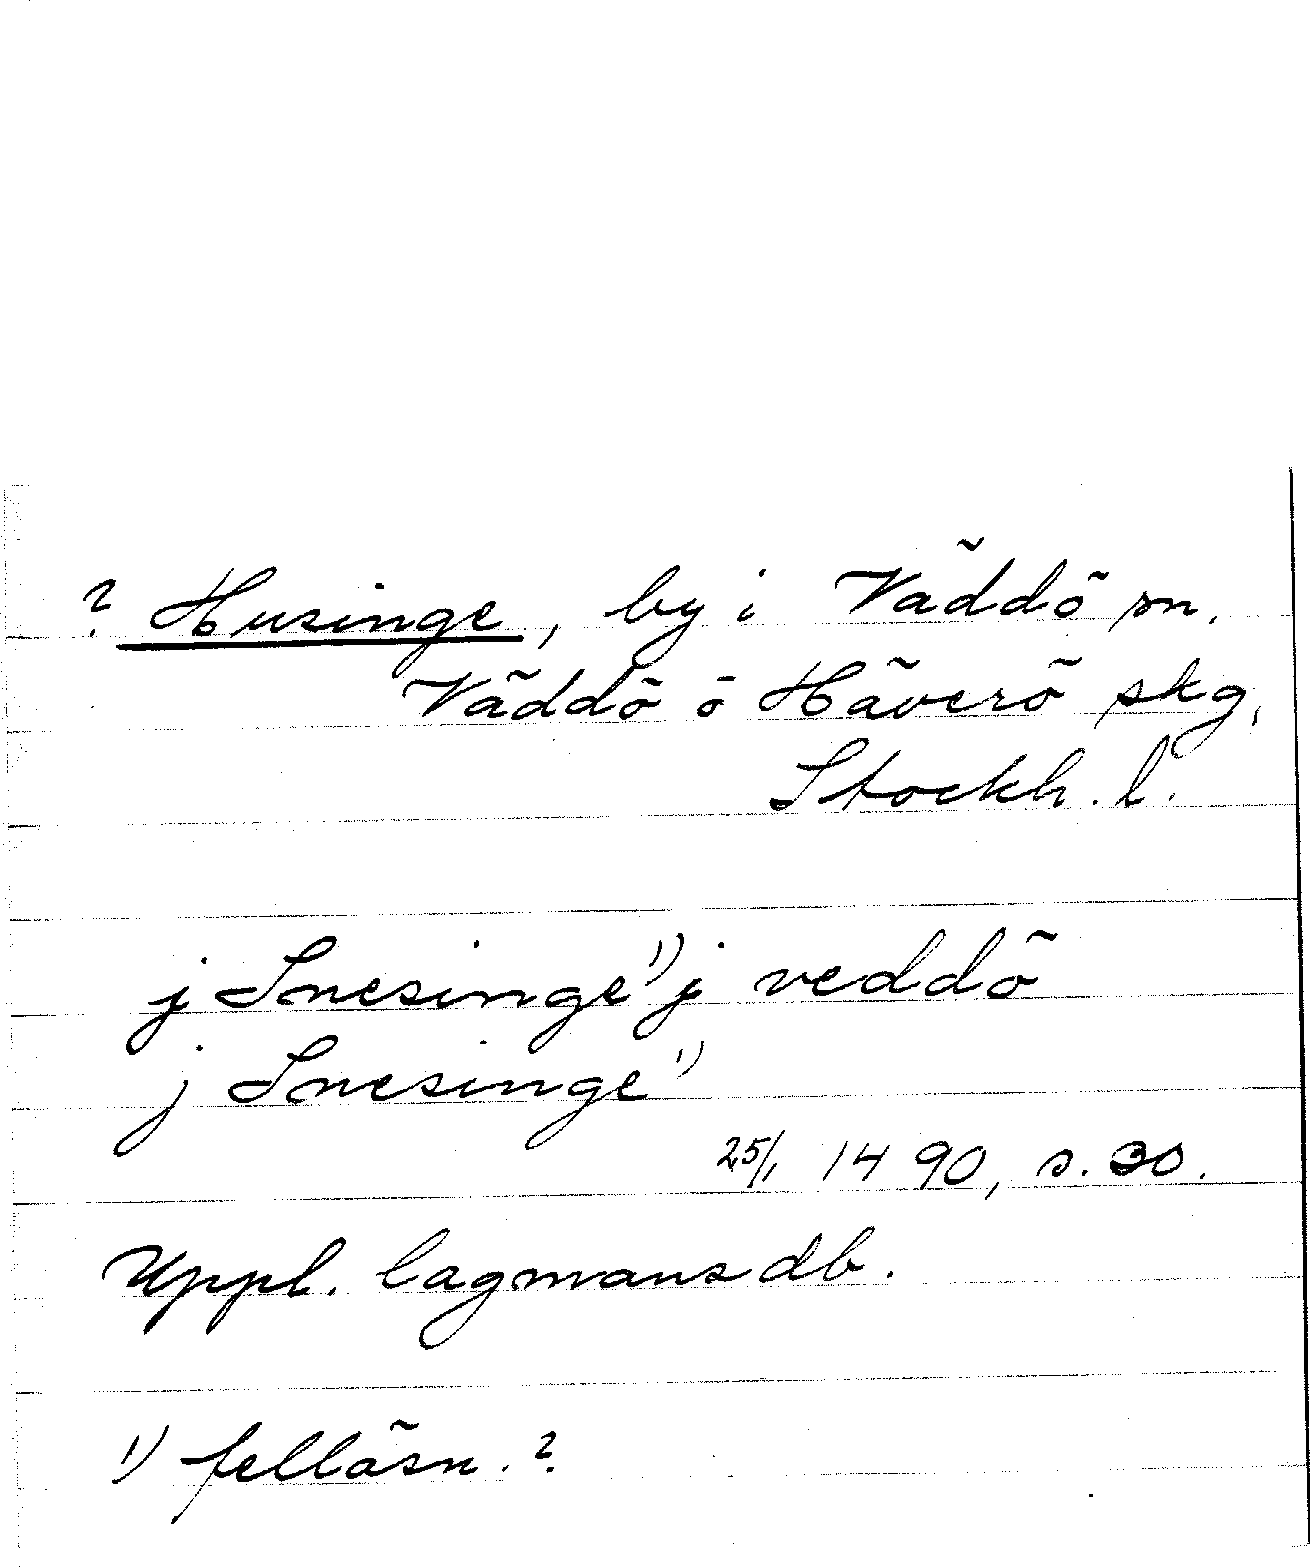 ? Husinge, by i Väddö sn,
Väddö o Häverö skg,
Stockh. l.
j Snesinge¹⁾ j veddö
j Snesinge¹⁾
25/1 1490, s. 30.
Uppl. lagmansdb.
1) felläsn. ?